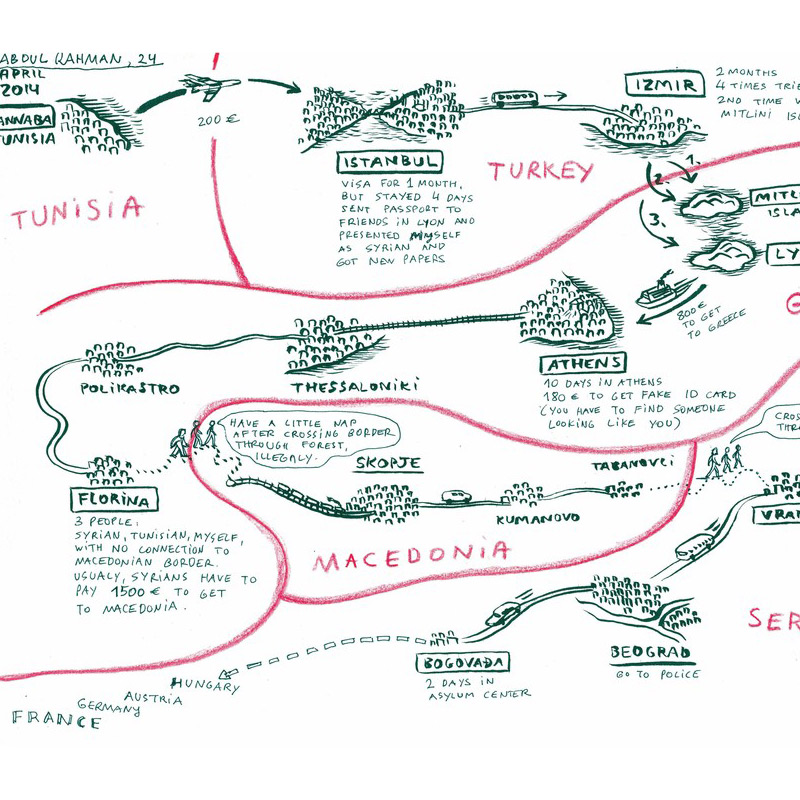 ABDUL RAHMAN, 24
APRIL
2014
ANNABA
TUNISIA
200 €
TUNISIA
ISTANBUL
VISA FOR 1 MONTH,
BUT STAYED 4 DAYS
SENT PASSPORT TO
FRIENDS IN LYON AND
PRESENTED MYSELF
AS SYRIAN AND
GOT NEW PAPERS
TURKEY
IZMIR
2 MONTHS
4 TIMES TRIE
2ND TIME
MITLINI
1.
2.
3.
MITL
ISLA
LY
G
800€
TO GET
TO GREECE
ATHENS
10 DAYS IN ATHENS
180 € TO GET FAKE ID CARD
(YOU HAVE TO FIND SOMEONE
LOOKING LIKE YOU)
THESSALONIKI
POLIKASTRO
FLORINA
3 PEOPLE:
SYRIAN, TUNISIAN, MYSELF,
WITH NO CONNECTION TO
MACEDONIAN BORDER.
USUALY, SYRIANS HAVE TO
PAY 1500 € TO GET
TO MACEDONIA.
HAVE A LITTLE NAP
AFTER CROSSING BORDER
THROUGH FOREST,
ILLEGALY.
SKOPJE
KUMANOVO
TABANOVCI
MACEDONIA
CROS
THR
VRAN
SER
BEOGRAD
GO TO POLICE
BOGOVAĐA
2 DAYS IN
ASYLUM CENTER
HUNGARY
AUSTRIA
GERMANY
FRANCE